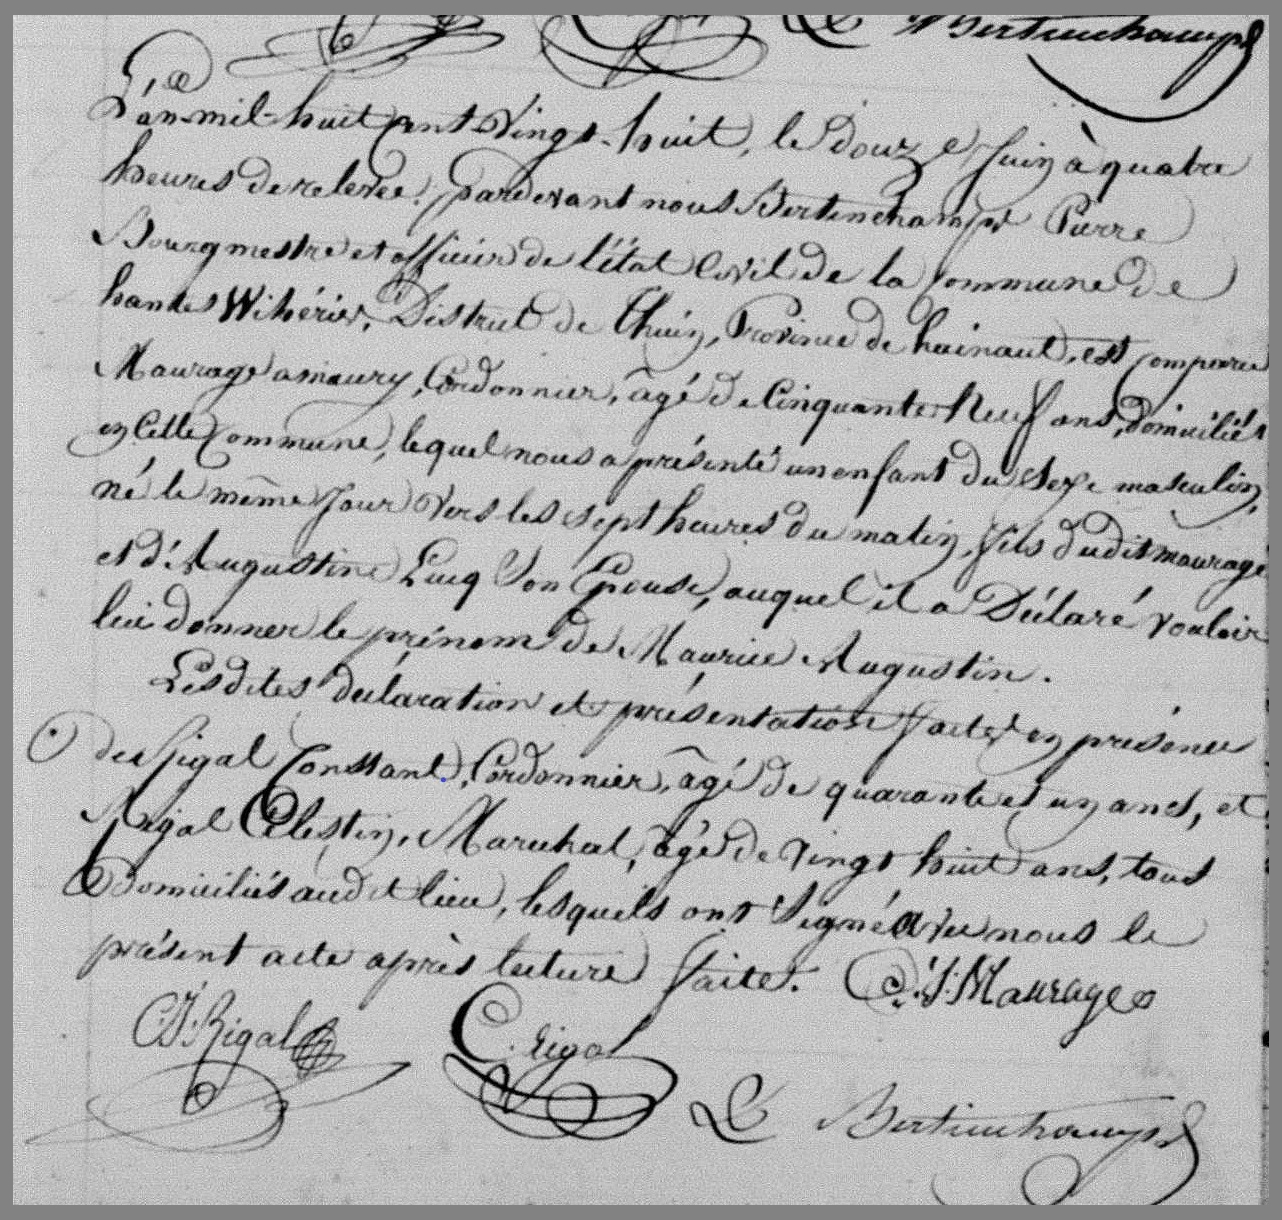 Bertinchamps
L'an mil huit cent Vingt-huit, le Douze Juin à quatre
heures de relevée, pardevant nous Bertinchamps Pierre
Bourgmestre et officier de l'état Civil de la Commune de
hantes Wihéries, District de Thuin, Province de hainaut, est comparu
Maurage amaury, Cordonnier, âgé de Cinquante Neuf ans, domiciliés
en Cette Commune, lequel nous a présenté un enfant du Sexe masculin,
né le même Jour Vers les sept heures du matin, fils dudit maurage
et d'Augustine Lucq Son Epouse, auquel il a Déclaré vouloir
lui donner le prénom de Maurice Augustin.
Lesdites déclaration et présentation faites en présence
de Rigal Constant, Cordonnier, âgé de quarante et un ans, et
Rigal Célestin, Maréchal, âgé de Vingt huit ans, tous
Domiciliés audit lieu, lesquels ont Signé avec nous le
présent acte après lecture faite. A.J. Maurage
C.J. Rigal C. Rigal
Bertinchamps